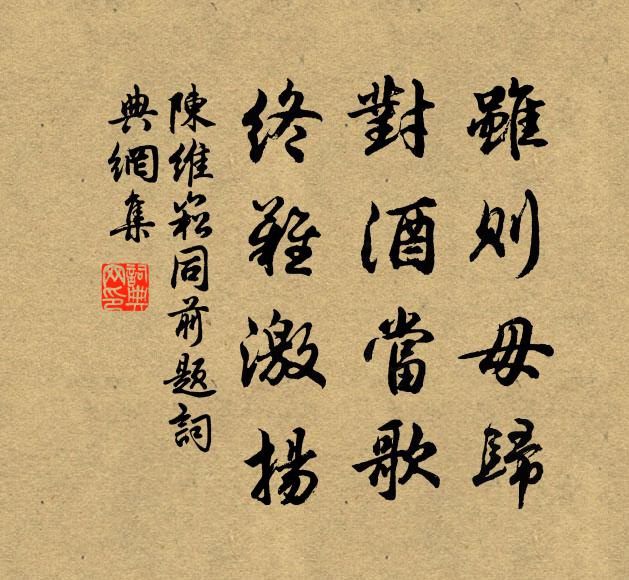 雖則毋歸
對酒當歌
終難激揚
陳維崧同前題詞
典網集
詞典網印